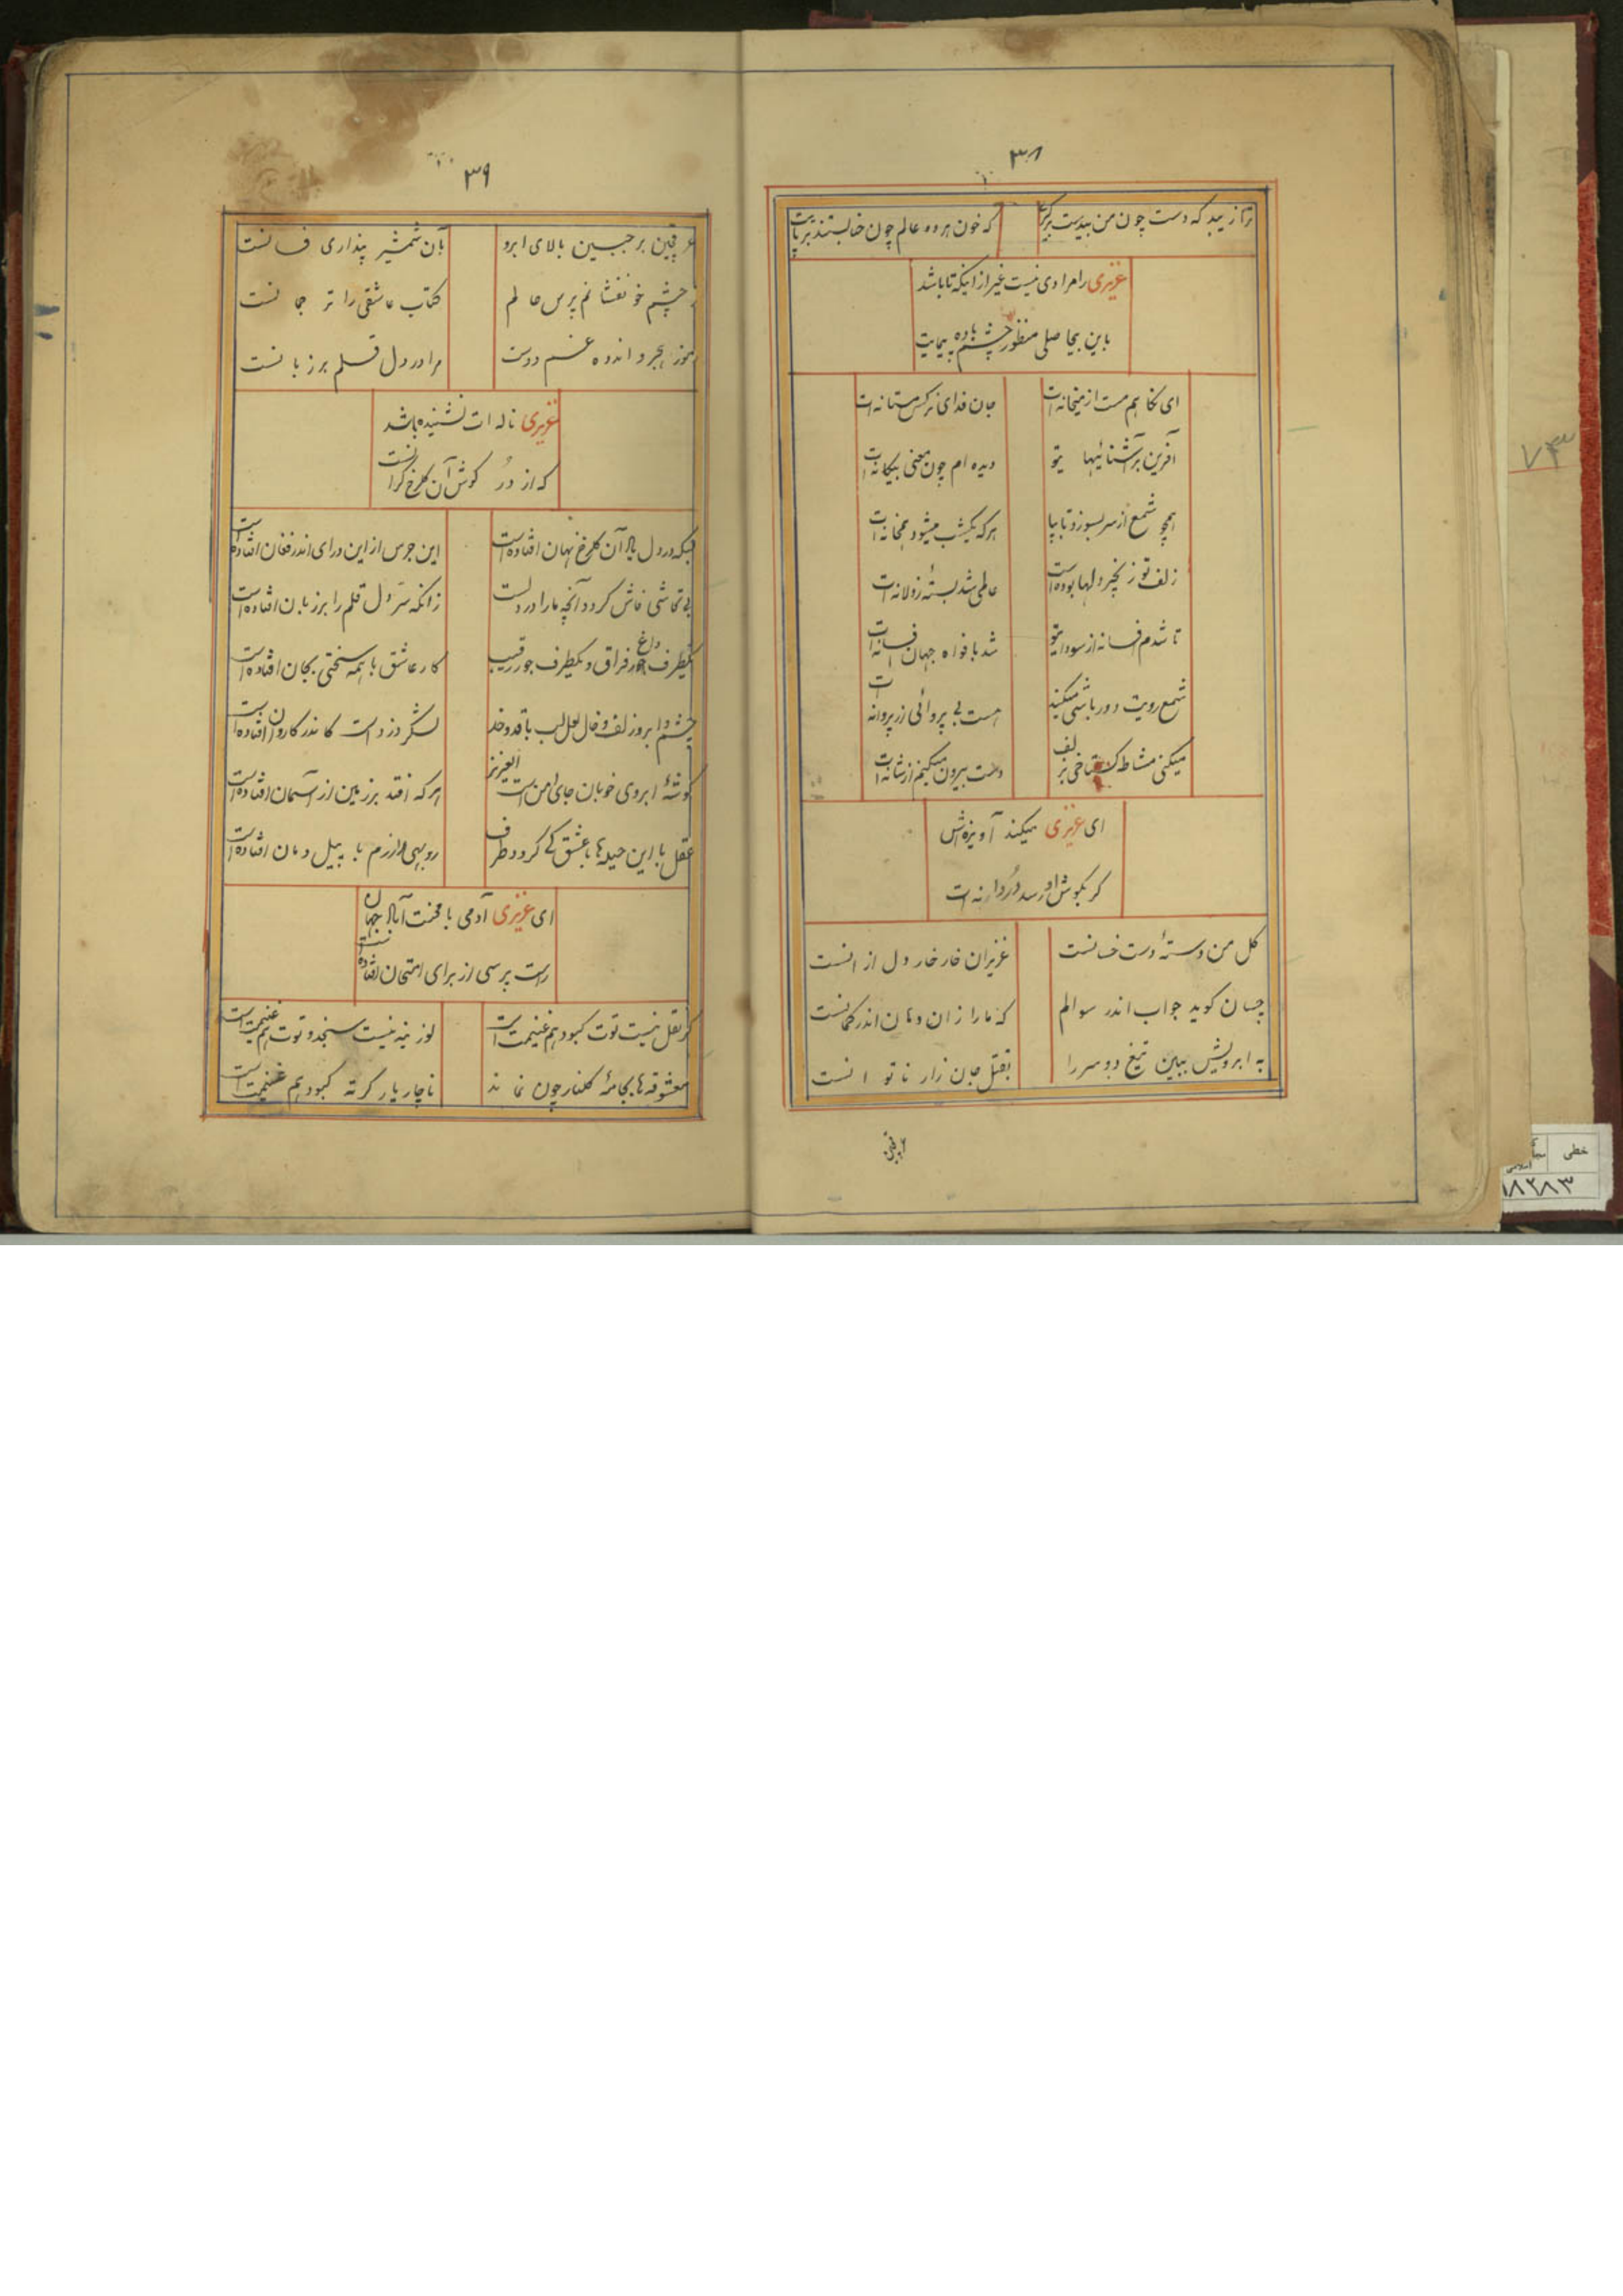 ۳۸
ترا زیبد که دست چون من بیدست برگیری که خون هر دو عالم چون حنا بستند بر پایت
عزیزی را مرادی نیست غیر از اینکه تا باشد
باین بیحاصلی منظور چشم باده پیمایت
ای نگاهم مست از میخانه‌ات جان فدای نرگس مستانه‌ات
آفرین بر آشنائیهای تو دیده‌ام چون معنی بیگانه‌ات
همچو شمع از سر بسوزد تا بپا هر که یکشب میشود همخانه‌ات
زلف تو زنجیر دلها بوده است عالمی شد بستهٔ زولانه‌ات
تا شدم افسانه از سودای تو شد بافواه جهان افسانه‌ات
شمع رویت دور باشی میکند هست بی پروائی از پروانه‌ات
میکنی مشاطه گستاخی بزلف دست بیرون میکنم از شانه‌ات
ای عزیزی میکند آویزه‌اش
گر بگوش او رسد دُردانه‌ات
گل من دستهٔ دست خسانست عزیزان خار خار دل از انست
چسان گوید جواب اندر سوالم که ما را زان دهان اندر گمانست
به ابرویش ببین تیغ دو سر را بقتل جان زار ناتوانست
عرقچین
۳۹
عرقچین بر جبین بالای ابرو بآن شمشیر پنداری فسانست
ز چشم خونفشانم پرس حالم کتاب عاشقی را ترجمانست
هنوز از هجر و اندوه غم دوست مرا در دل قلم بر زبانست
عزیزی ناله‌ات نشنیده باشد
که از دُر گوش آن گلرخ گرانست
بسکه در دل یاد آن گلرخ نهان افتاده است این جرس از این درای اندر فغان افتاده است
بی تحاشی فاش گردد آنچه ما را در دلست زانکه سرّ دل قلم را بر زبان افتاده است
یکطرف داغ فراق و یکطرف جور رقیب کار عاشق با همه سختی بجان افتاده است
چشم و ابرو زلف و خال و لعل لب با قد و خد لشکر دزد است کاندر کاروان افتاده است
گوشهٔ ابروی خوبان جای امن است العزیز هر که افتد بر زمین از آسمان افتاده است
عقل با این حیله‌ها با عشق کی گردد طرف روبهی را رزم با پیل دمان افتاده است
ای عزیزی آدمی با محنت آباد جهان
راست پرسی از برای امتحان افتاده است
گر نقل نیست توت کبود هم غنیمت است لوزینه نیست سنجد و توت هم غنیمت است
معشوقه‌ها بجامهٔ گلنار چون نماند ناچار یار کرته کبود هم غنیمت است
۷۳
خطی
۱۸۲۸۳